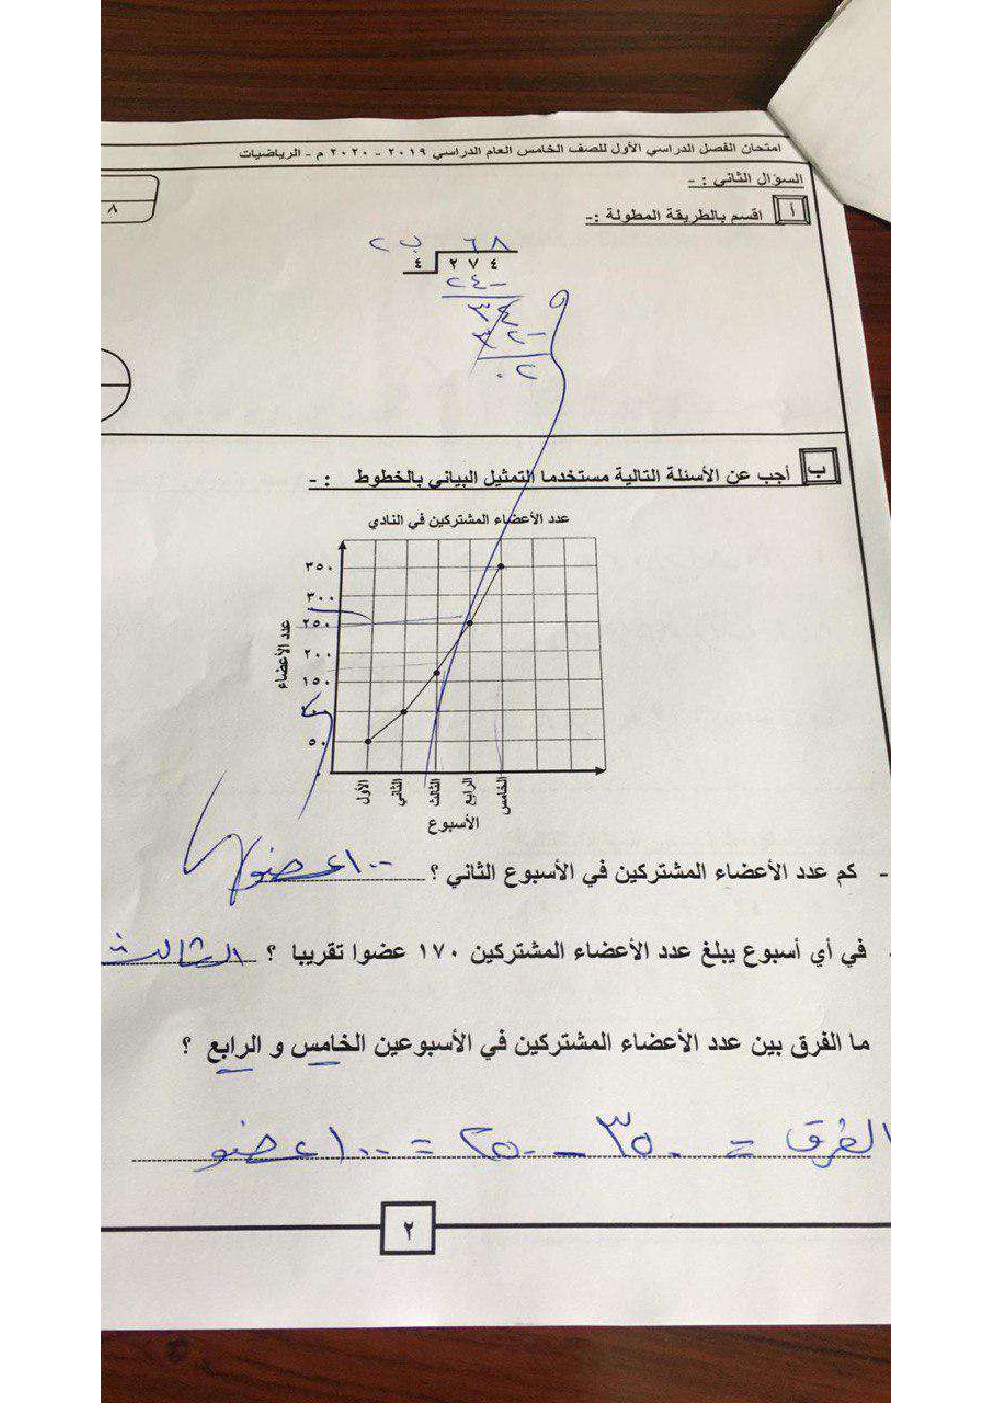 امتحان الفصل الدراسي الأول للصف الخامس العام الدراسي ٢٠١٩ - ٢٠٢٠ م - الرياضيات
السؤال الثاني : -
٨
أ اقسم بالطريقة المطولة :-
٦٨ ب ٢
٤ ٢٧٤
٢٤ -
٣٤
٣٢ -
٠٢
ب أجب عن الأسئلة التالية مستخدما التمثيل البياني بالخطوط : -
عدد الأعضاء المشتركين في النادي
٣٥٠
٣٠٠
٢٥٠
٢٠٠
١٥٠
٥٠
٠
عدد الأعضاء
الأول الثاني الثالث الرابع الخامس
الأسبوع
- كم عدد الأعضاء المشتركين في الأسبوع الثاني ؟ ١٠٠ عضو
في أي أسبوع يبلغ عدد الأعضاء المشتركين ١٧٠ عضوا تقريبا ؟ الثالث
ما الفرق بين عدد الأعضاء المشتركين في الأسبوعين الخامس و الرابع ؟
الفرق = ٣٥٠ - ٢٥٠ = ١٠٠ عضو
٢